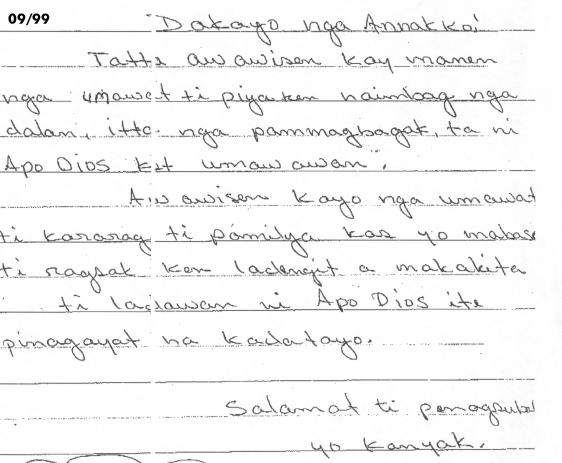 09/99
"Dakayo nga Annakko!
Tatta aw awisen kay manen
nga umawat ti piya ken naimbag nga
dalan, itta nga pammagbagak, ta ni
Apo Dios ket umaw awan".
Aw awisen kayo nga umawat
ti kararag ti pamilya kas yo mabasa
ti ragsak ken ladengit a makakita
ti laslawan ni Apo Dios ite
pinagayat na kadatayo.
Salamat ti penagsubal
yo kanyak.